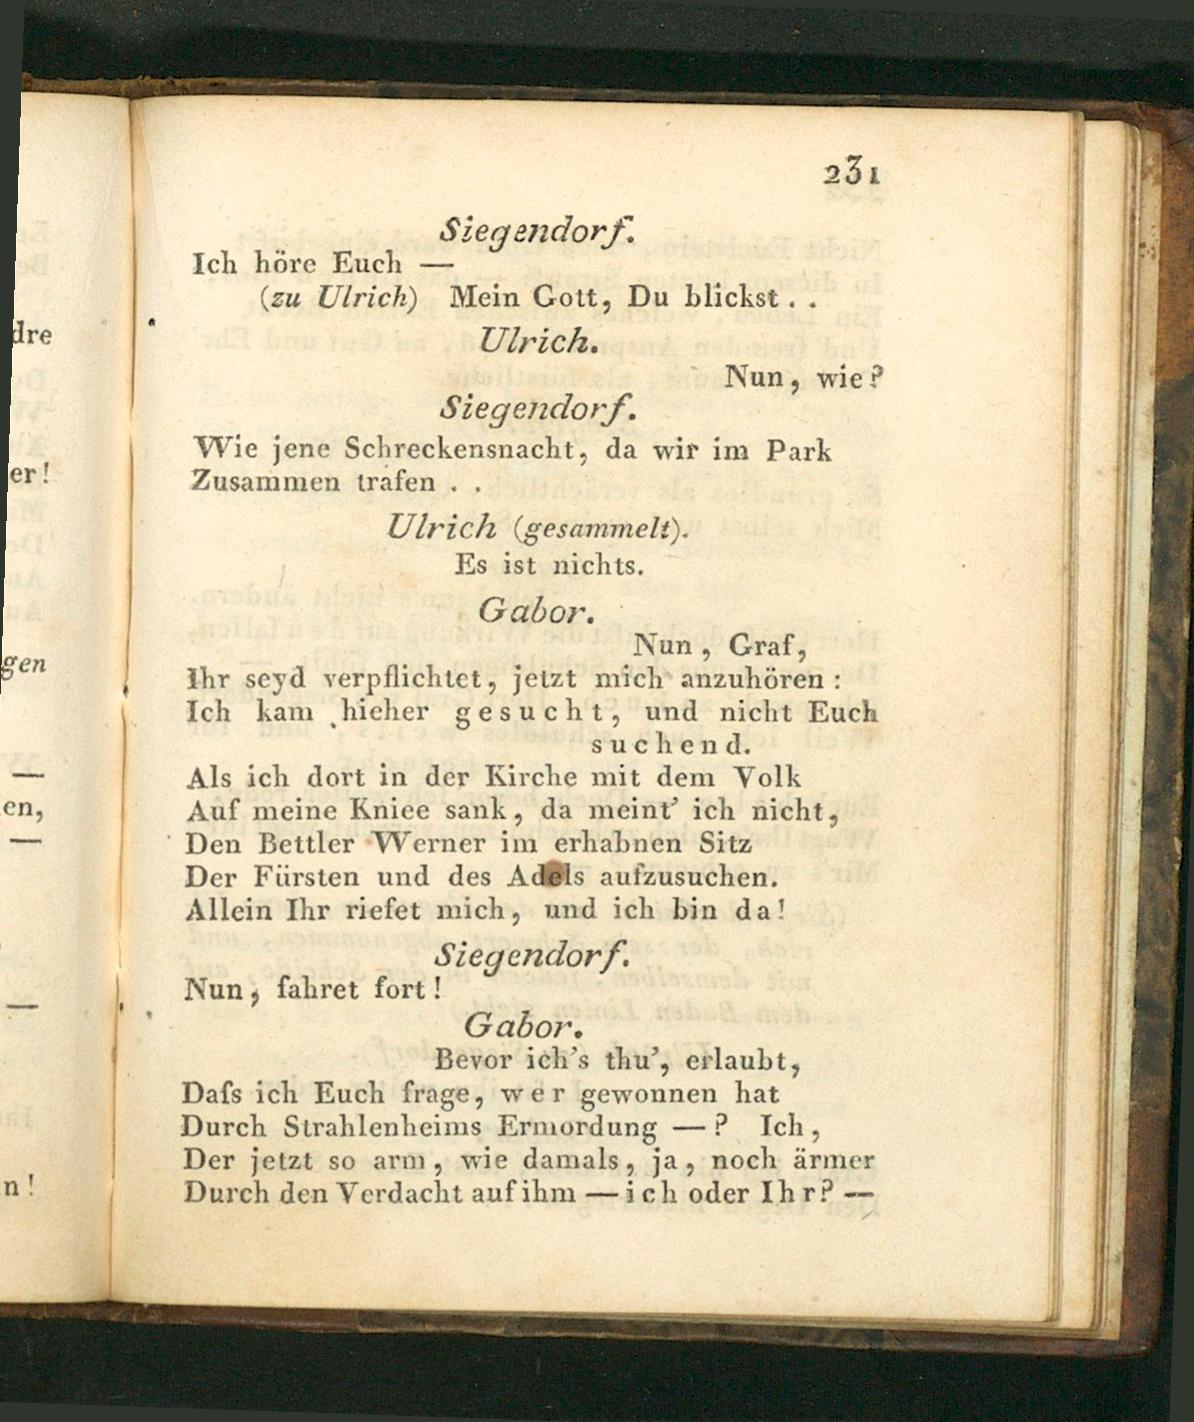 231
Siegendorf.
Ich höre Euch —
(zu Ulrich) Mein Gott, Du blickst . .
Ulrich.
Nun, wie?
Siegendorf.
Wie jene Schreckensnacht, da wir im Park
Zusammen trafen . .
Ulrich (gesammelt).
Es ist nichts.
Gabor.
Nun, Graf,
Ihr seyd verpflichtet, jetzt mich anzuhören:
Ich kam hieher gesucht, und nicht Euch
suchend.
Als ich dort in der Kirche mit dem Volk
Auf meine Kniee sank, da meint' ich nicht,
Den Bettler Werner im erhabnen Sitz
Der Fürsten und des Adels aufzusuchen.
Allein Ihr riefet mich, und ich bin da!
Siegendorf.
Nun, fahret fort!
Gabor.
Bevor ich's thu', erlaubt,
Daſs ich Euch frage, wer gewonnen hat
Durch Strahlenheims Ermordung — ? Ich,
Der jetzt so arm, wie damals, ja, noch ärmer
Durch den Verdacht auf ihm — ich oder Ihr? —
dre
er!
gen
—
en,
—
—
n!